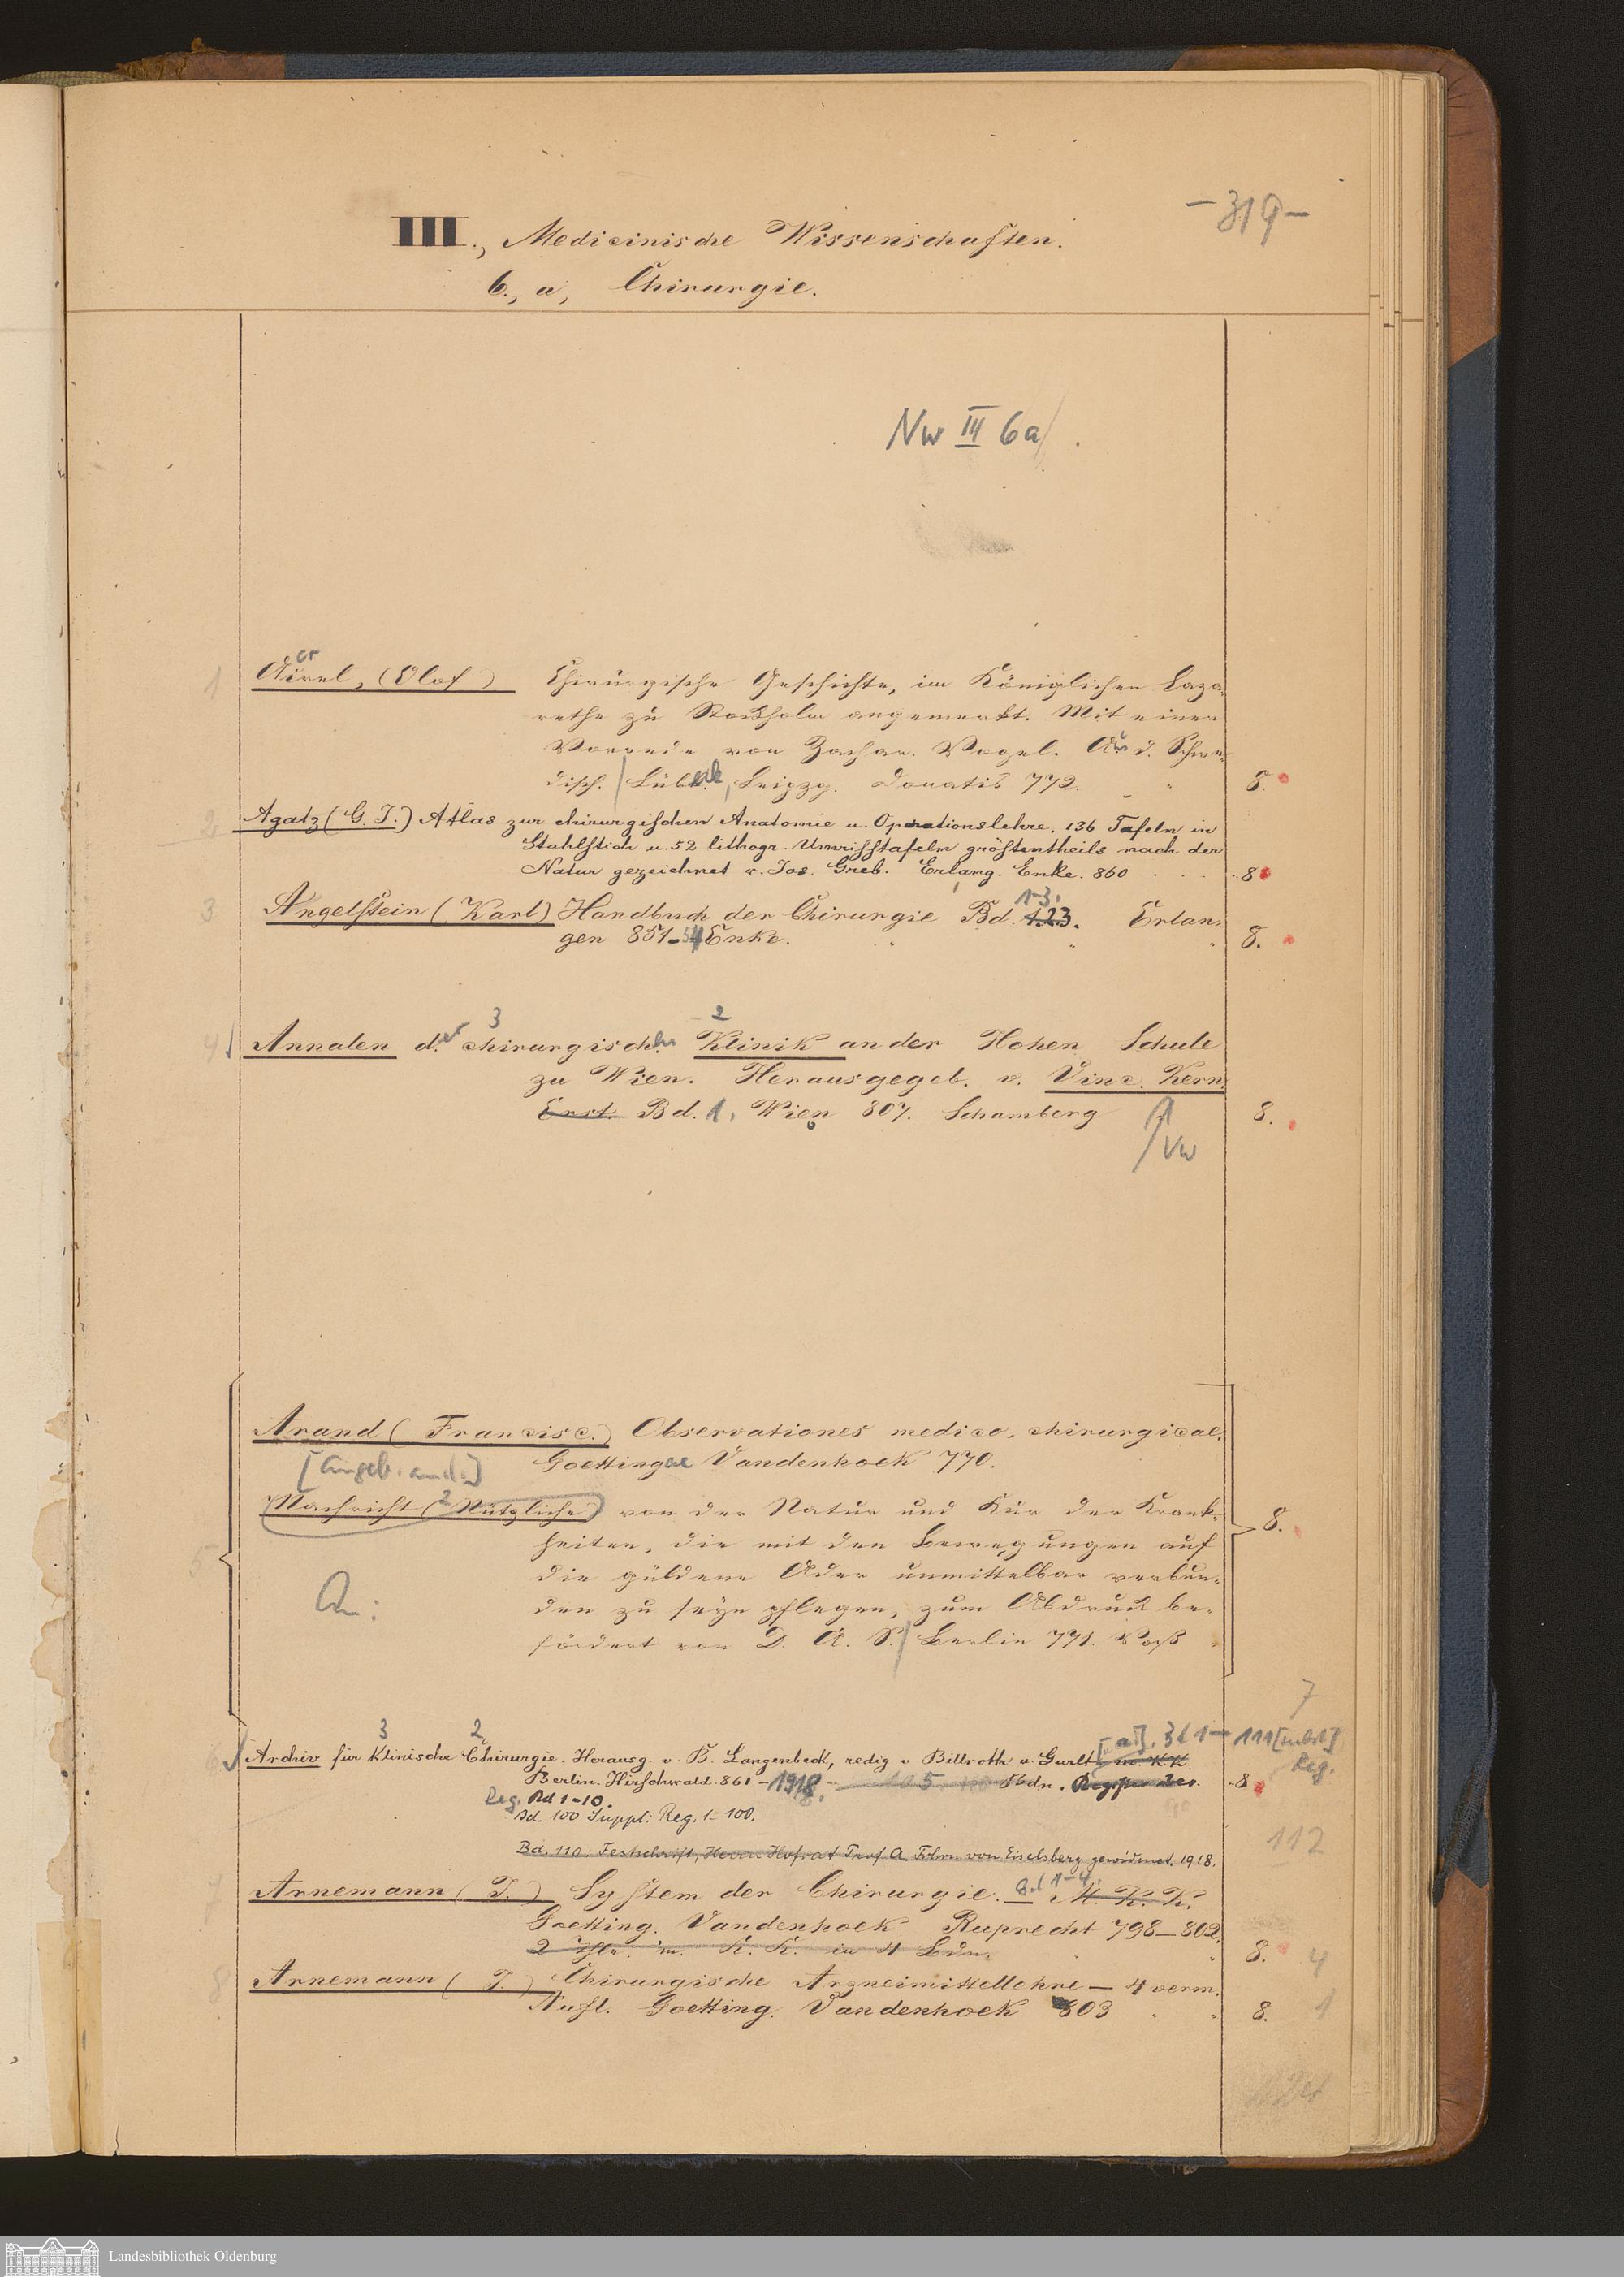 -319-
III., Medicinische Wissenschaften.
6., a, Chirurgie.
Nw III 6a
1 Acrel, (Olof) Chirurgische Geschichte, im Königlichen Laza-
rethe zu Stockholm angemerkt. Mit einer
Vorrede von Zachar. Vogel. Aus d. Schwe-
disch. Lübeck, Leipzg. Donatis 772. 8.
2 Agatz (G. J.) Atlas zur chirurgischen Anatomie u. Operationslehre. 136 Tafeln in
Stahlstich u. 52 lithogr. Umrisstafeln grösstentheils nach der
Natur gezeichnet v. Jos. Greb. Erlang. Enke. 860 8
1-3.
3 Angelstein (Karl) Handbuch der Chirurgie Bd. 1.2.3. Erlan-
gen 851-54 Enke. 8.
3 2
4 Annalen der chirurgischen Klinik an der Hohen Schule
zu Wien. Herausgegeb. v. Vinc. Kern.
Erst. Bd. 1, Wien 807. Schamberg 8.
Vw
Arand (Francisc.) Observationes medico-chirurgicae.
[angeb. and.] Goettingae Vandenhoek 770.
Nachricht (2 Nützliche) von der Natur und Kur der Krank-
heiten, die mit den Bewegungen auf 8.
5 die güldene Ader unmittelbar verbun-
An: den zu seyn pflegen, zum Abdruck be-
fördert von D. A. S. Berlin 771. Voß
7
3 2 [u a]. Bd 1-111 [nebst]
6 Archiv für Klinische Chirurgie. Herausg. v. B. Langenbeck, redig v Billroth u. Gurlt m. K.K. Reg.
Berlin. Hirschwald. 861-1918. 105 Bdn. 8
Reg. Bd 1-10.
Bd. 100 Suppl: Reg. 1-100.
112
Bd. 110: Festschrift, Herrn Hofrat Prof A Frhrn von Eiselsberg gewidmet. 1918.
7 Arnemann (J.) System der Chirurgie. Bd 1-4. M. K. K.
Goetting. Vandenhoek Ruprecht 798-802.
2 Thle. m. K. K. in 4 Bdn. 8. 4
8 Arnemann (J.) Chirurgische Arzneimittellehre - 4 verm.
Aufl. Goetting. Vandenhoek 803 8. 1
Landesbibliothek Oldenburg